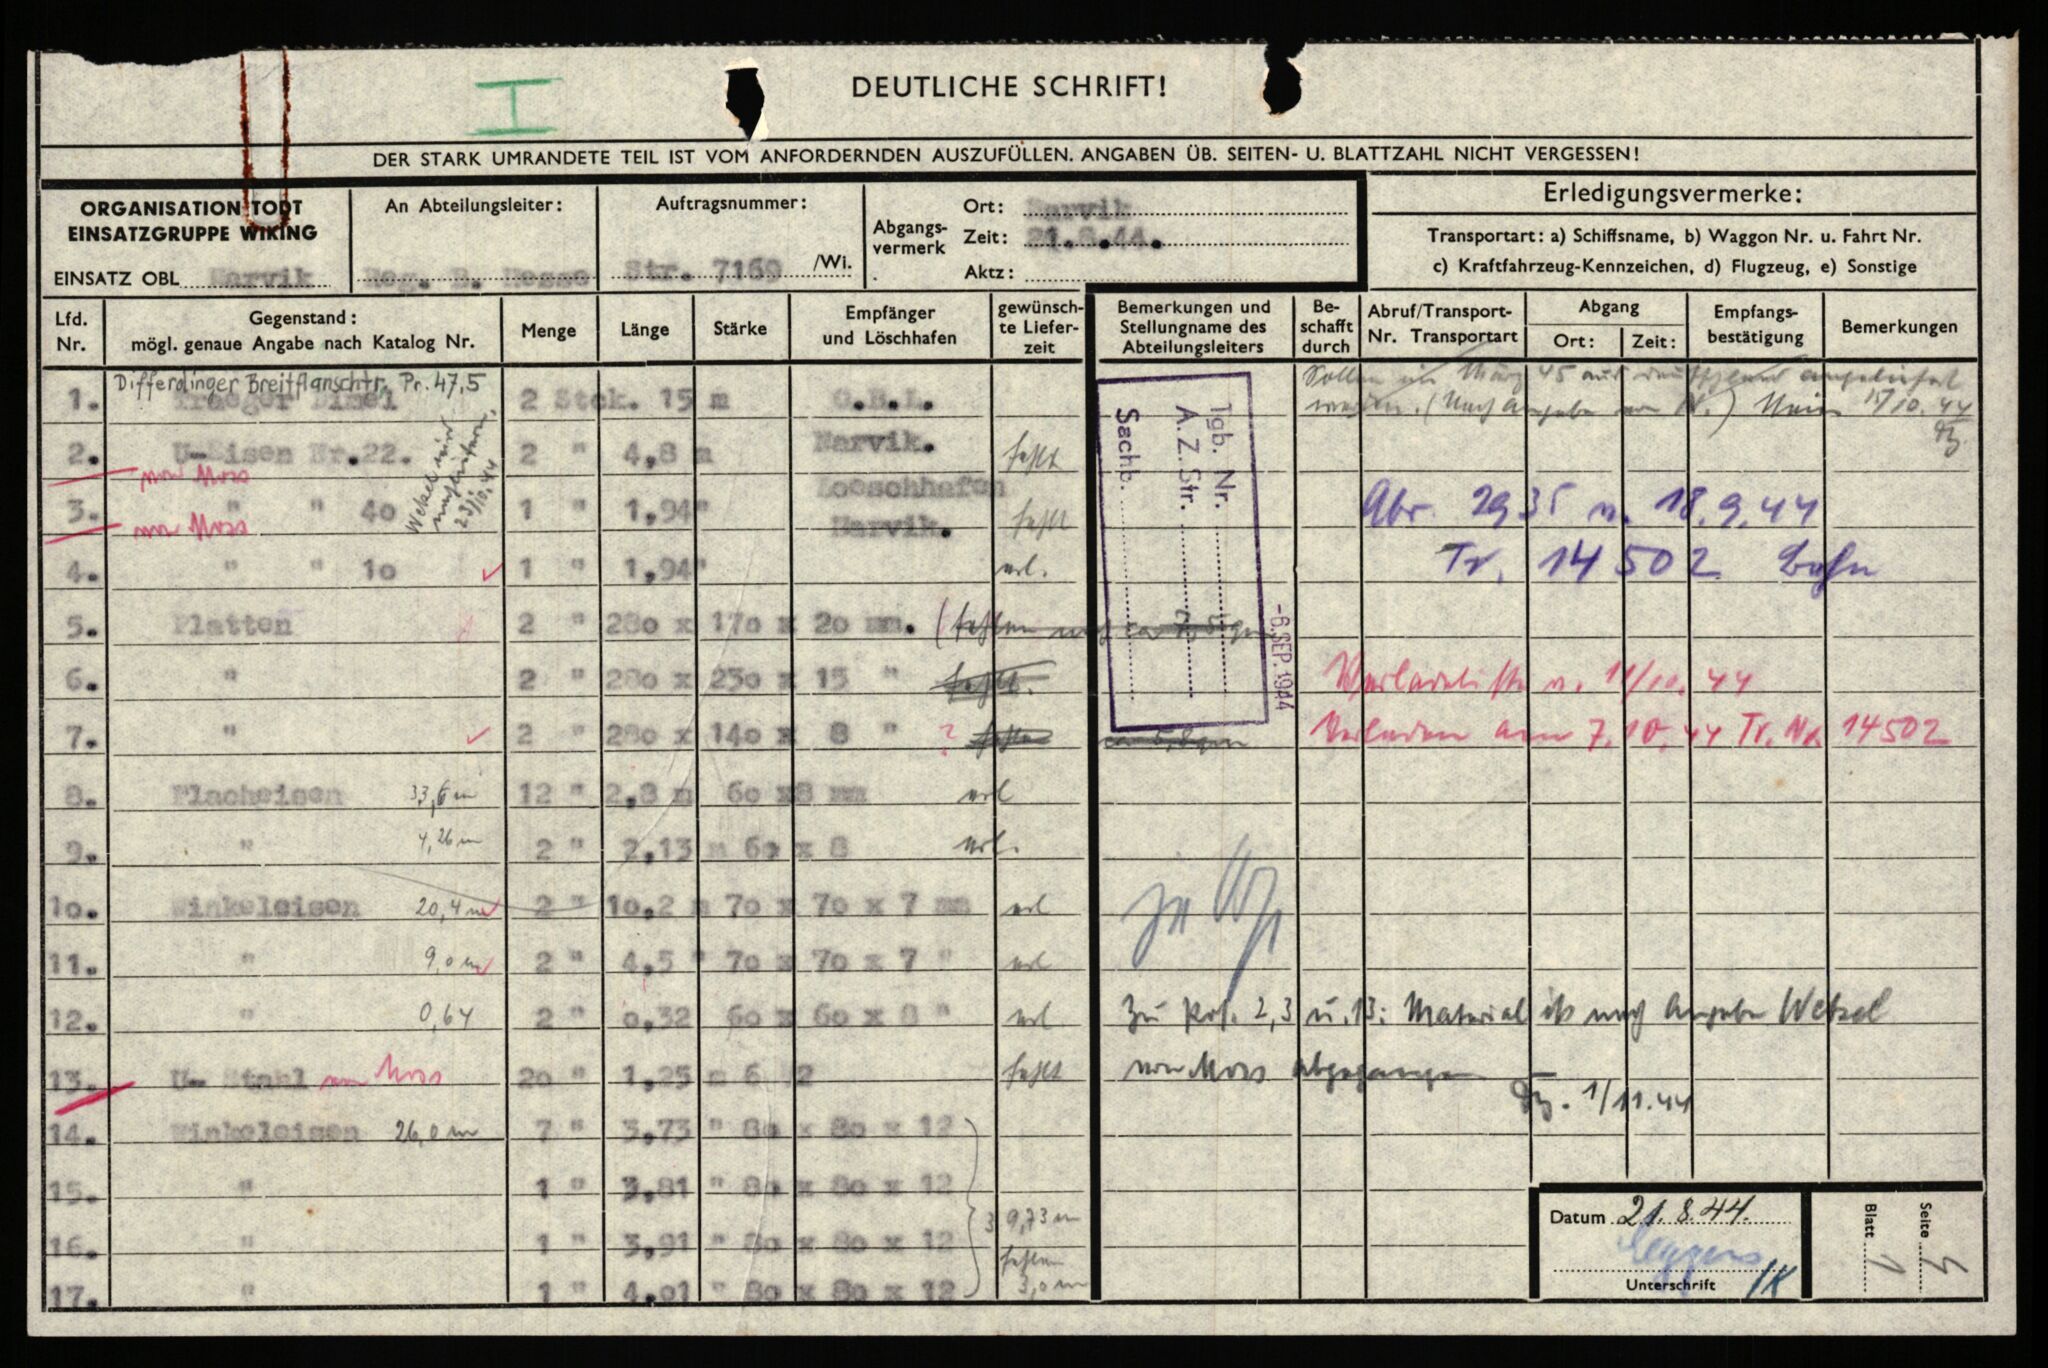 I
DEUTLICHE SCHRIFT!
DER STARK UMRANDETE TEIL IST VOM ANFORDERNDEN AUSZUFÜLLEN. ANGABEN ÜB. SEITEN- U. BLATTZAHL NICHT VERGESSEN!
ORGANISATION TODT
EINSATZGRUPPE WIKING
EINSATZ OBL Narvik
An Abteilungsleiter:
Reg. B. Hesse
Auftragsnummer:
Str. 7169 /Wi.
Abgangs-
vermerk
Ort: Narvik
Zeit: 21.8.44.
Aktz:
Erledigungsvermerke:
Transportart: a) Schiffsname, b) Waggon Nr. u. Fahrt Nr.
c) Kraftfahrzeug-Kennzeichen, d) Flugzeug, e) Sonstige
Lfd.
Nr.
Gegenstand:
mögl. genaue Angabe nach Katalog Nr.
Menge
Länge
Stärke
Empfänger
und Löschhafen
gewünsch-
te Liefer-
zeit
Bemerkungen und
Stellungname des
Abteilungsleiters
Be-
schafft
durch
Abruf/Transport-
Nr. Transportart
Abgang
Ort: Zeit:
Empfangs-
bestätigung
Bemerkungen
Differdinger Breitflanschtr. Pr. 47,5
1. Traeger Dimel 2 Stck. 15 m O.B.L.
Sollen im März 45 aus angeliefert
werden. (Nach Angabe von N.) 15/10.44
2. U-Eisen Nr.22. 2 " 4,8 m Narvik. fehlt
von Moss
Loeschhafen
3. " " 40 1 " 1,94" Narvik. fehlt
von Moss
Wetzel
23/10.44
Abr. 2935 v. 18.9.44
4. " " 10 1 " 1,94" erl.
Tr. 14502 Bahn
5. Platten 2 " 280 x 170 x 20 mm. (fehlen noch
6. " 2 " 280 x 230 x 15 " fehlt.
Verladeliste v. 11/10.44
7. " 2 " 280 x 140 x 8 " ?
Verladen am 7.10.44 Tr. Nr. 14502
8. Flacheisen 33,6 m 12 " 2,8 m 60 x8 mm erl
9. " 4,26 m 2 " 2,13 m 60 x 8 erl.
10. Winkeleisen 20,4 m 2 " 10,2 m 70 x 70 x 7 mm erl
11. " 9,0 m 2 " 4,5 " 70 x 70 x 7 " erl
12. " 0,64 2 " 0,32 60 x 60 x 8 " erl
Zu Pos. 2,3 u. 13: Material ist nach Angabe Wetzel
13. U- Stahl von Moss 20 " 1,25 m 6 2 fehlt
von Moss abgegangen
1/11.44
14. Winkeleisen 26,0 m 7 " 3,73 " 80 x 80 x 12
15. " 1 " 3,81 " 80 x 80 x 12
39,73 m
16. " 1 " 3,91 " 80 x 80 x 12
fehlen
17. " 1 " 4,01 " 80 x 80 x 12
3,0 m
Tgb. Nr.
A.Z. Str.
Sachb.
-6. SEP. 1944
Datum 21.8.44.
Unterschrift
Blatt
Seite